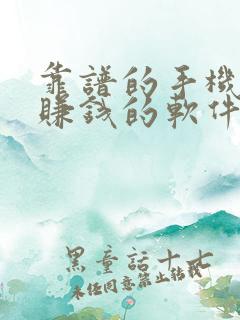 靠譜的手機
賺錢的軟件
黑童話十七
未经同意禁止转载